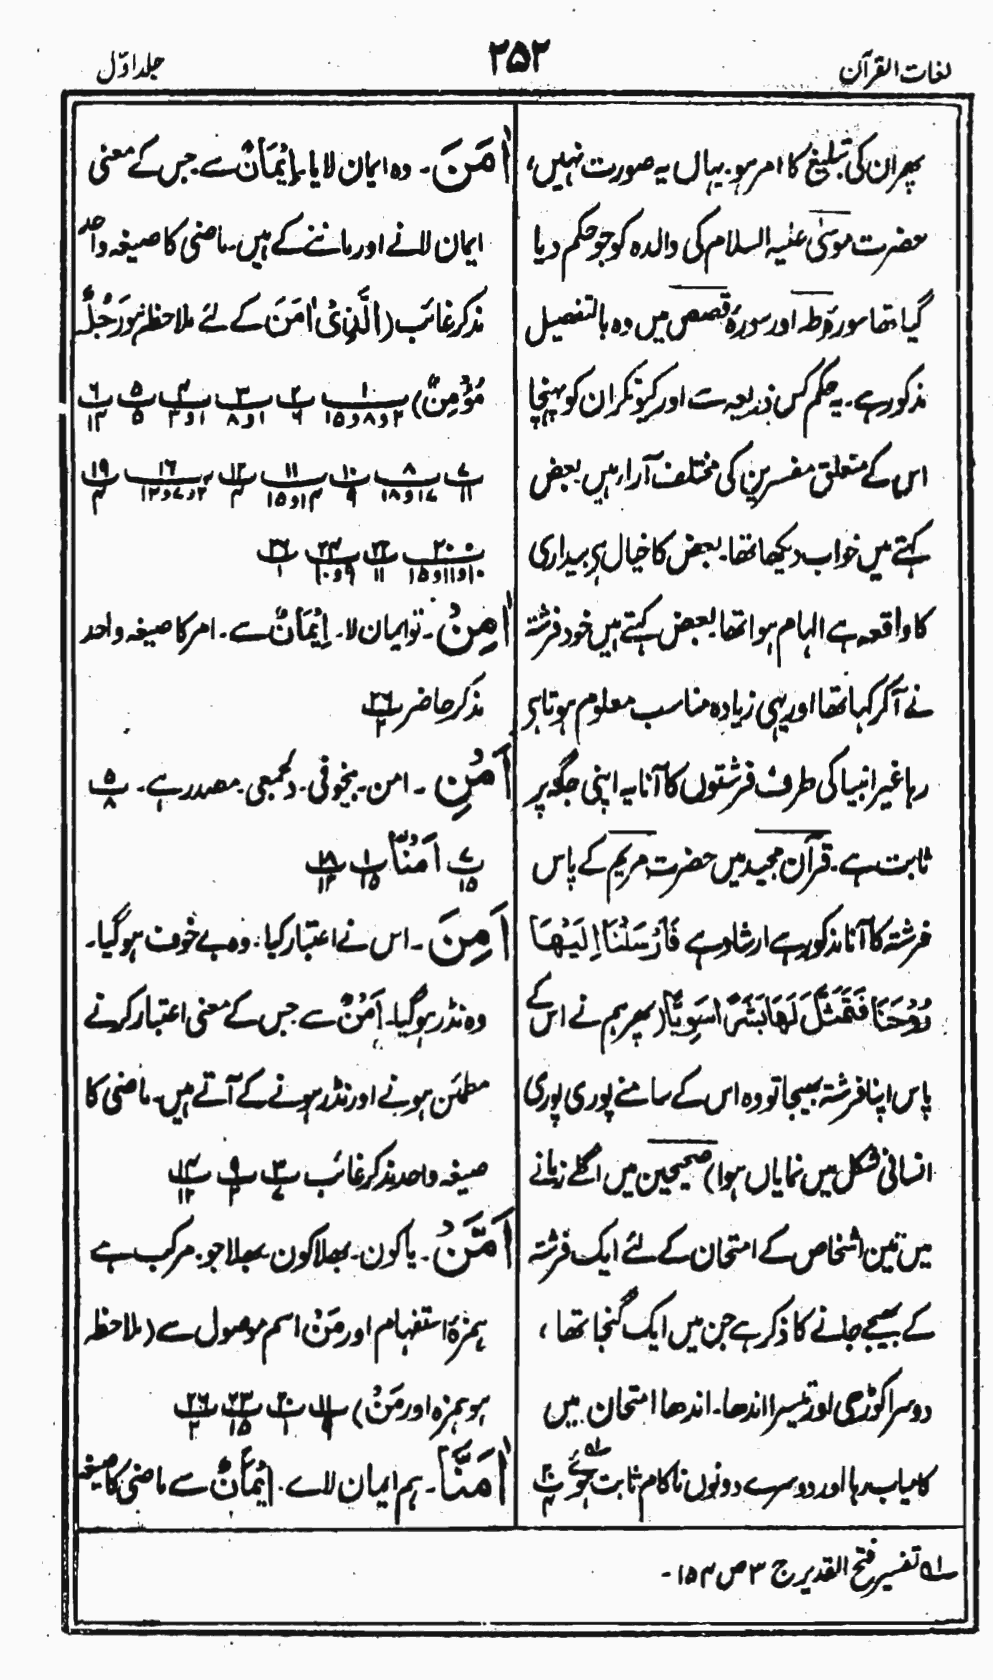 لغات القرآن
۲۵۲
جلد اوّل
پھر ان کی تبلیغ کا امر ہو۔ یہاں یہ صورت نہیں،
حضرت موسیٰ علیہ السلام کی والدہ کو جو حکم دیا
گیا تھا سورۂ طہ اور سورۂ قصص میں وہ بالتفصیل
مذکور ہے۔ یہ حکم کس ذریعہ سے اور کیونکر ان کو پہنچا
اس کے متعلق مفسرین کی مختلف آراء ہیں بعض
کہتے ہیں خواب دیکھا تھا۔ بعض کا خیال ہی بیداری
کا واقعہ ہے الہام ہوا تھا بعض کہتے ہیں خود فرشتہ
نے آکر کہا تھا اور یہی زیادہ مناسب معلوم ہوتا ہی
رہا غیر انبیا کی طرف فرشتوں کا آنا یہ اپنی جگہ پر
ثابت ہے۔ قرآن مجید میں حضرت مریم کے پاس
فرشتہ کا آنا مذکور ہے ارشاد ہے فَاَرْسَلْنَا اِلَیْھَا
رُوْحَنَا فَتَمَثَّلَ لَھَا بَشَرًا سَوِیًّا (پھر ہم نے اس کے
پاس اپنا فرشتہ بھیجا تو وہ اس کے سامنے پوری پوری
انسانی شکل میں نمایاں ہوا) صحیحین میں اگلے زمانے
میں تین اشخاص کے امتحان کے لئے ایک فرشتہ
کے بھیجے جانے کا ذکر ہے جن میں ایک گنجا تھا،
دوسرا کوڑھی اور تیسرا اندھا۔ اندھا امتحان میں
کامیاب رہا اور دوسرے دونوں ناکام ثابت ہوئے لہ ۲۰/۴
اٰمَنَ۔ وہ ایمان لایا۔ اِیْمَانٌ سے جس کے معنی
ایمان لانے اور ماننے کے ہیں۔ ماضی کا صیغہ واحد
مذکر غائب (الَّذِیْ اٰمَنَ کے لئے ملاحظہ ہو رَجُلٌ
مُؤْمِنٌ) ۱/۲و۸و۱۵ ۲/۶ ۳/۱و۸ ۴/۱و۳ ۵/۵ ۶/۱۲
۷/۱۱ ۸/۱۷و۱۸ ۱۰/۹ ۱۱/۱۴و۱۵ ۱۲/۴ ۱۶/۲و۷و۱۲ ۱۹/۴
۲۰/۱۰و۱۱و۱۵ ۲۲/۱۱ ۲۴/۹و۱۰ ۲۶/۱
اٰمِنْ۔ تو ایمان لا۔ اِیْمَانٌ سے۔ امر کا صیغہ واحد
مذکر حاضر ۲۶/۲
اَمْنِ۔ امن۔ بیخوفی۔ دلجمعی۔ مصدر ہے۔ ۵/۸
۷/۱۵ اَمْنًا ۱/۱۵ ۱۸/۱۳
اَمِنَ۔ اس نے اعتبار کیا۔ وہ بے خوف ہوگیا۔
وہ نڈر ہوگیا۔ اَمْنٌ سے جس کے معنی اعتبار کرنے
مطمئن ہونے اور نڈر ہونے کے آتے ہیں۔ ماضی کا
صیغہ واحد مذکر غائب ۳/۷ ۹/۲ ۱۴/۱۲
اَمَّنْ۔ یا کون۔ بھلا کون۔ بھلا جو۔ مرکب ہے
ہمزۂ استفہام اور مَنْ اسم موصول سے (ملاحظہ
ہو ہمزہ اور مَنْ) ۱۱/۹ ۲۰/۱ ۲۳/۱۵ ۲۶/۲
اٰمَنَّا۔ ہم ایمان لائے۔ اِیْمَانٌ سے ماضی کا صیغہ
لہ تفسیر فتح القدیر ج ۳ ص ۱۵۴۔